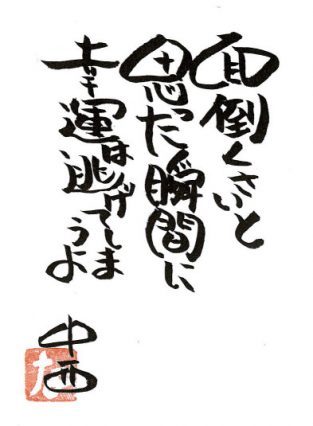 面倒くさいと
思った瞬間に
幸運は逃げてしまうよ
中西